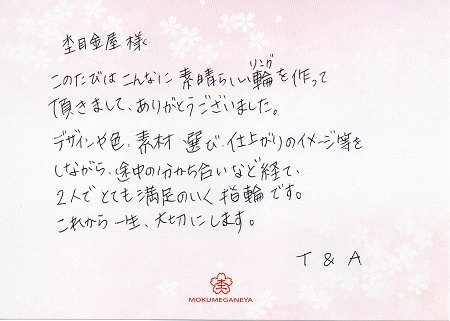 杢目金屋 様
このたびは こんなに 素晴らしい輪(リング)を作って
頂きまして、ありがとうございました。
デザインや色、素材 選び、仕上がりのイメージ等を
しながら、途中の分かち合いなど経て、
2人で とても 満足のいく 指輪です。
これから一生、大切にします。
T & A
MOKUMEGANEYA